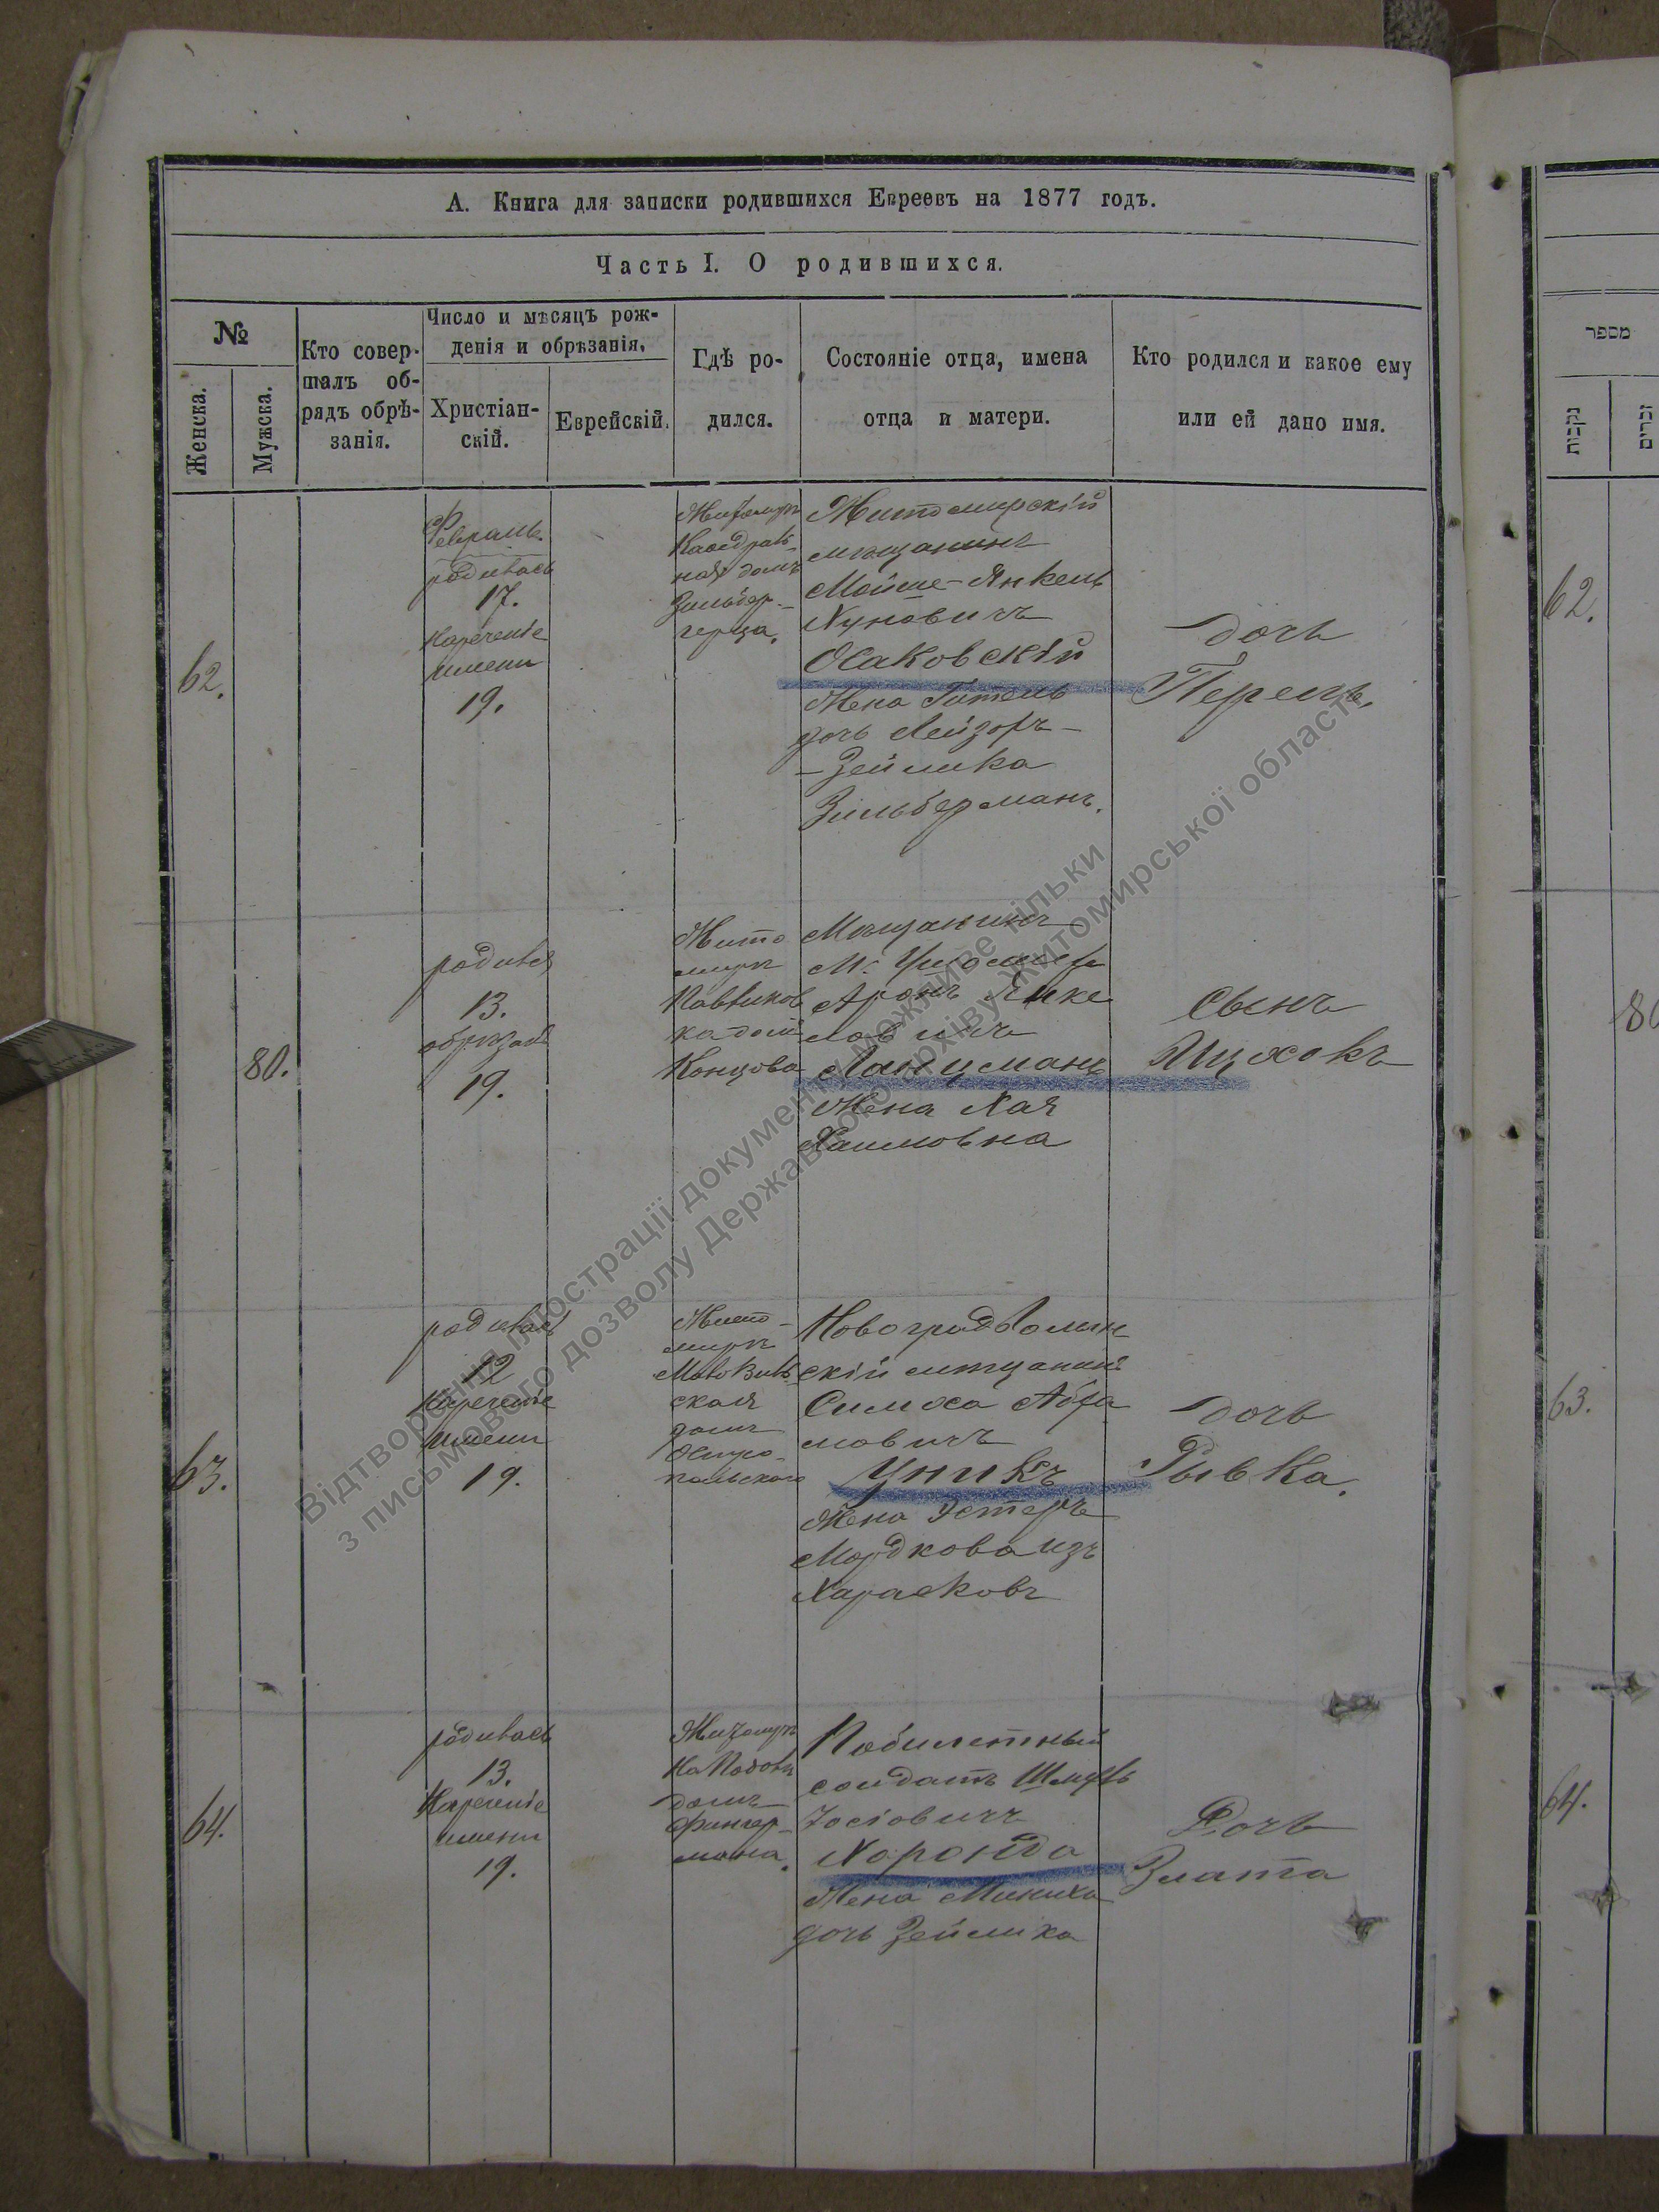 А. Книга для записки родившихся Евреевъ на 1877 годъ.
Часть I. О родившихся.
№
Женска.
Мужска.
Кто совер-
шалъ об-
рядъ обрѣ-
занія.
Число и мѣсяцъ рож-
денія и обрѣзанія.
Христіан-
скій.
Еврейскій.
Гдѣ ро-
дился.
Состояніе отца, имена
отца и матери.
Кто родился и какое ему
или ей дано имя.
62.
Февраль.
родилась
17.
Наречение
имени
19.
Житомиръ
Кафедраль-
ная домъ
Зильбер-
герца.
Житомирскій
мѣщанинъ
Мойше-Янкель
Хуновичъ
Осаковскій
Жена Гитель
дочь Лейзоръ-
-Зейлика
Зильберманъ.
дочь
Перель.
80.
родился
13.
обрѣзанъ
19.
Жито
миръ
домъ
Мѣщанинъ
м.
Аронъ Янке
ловичъ
Ланцманъ
Жена Хая
Хаимовна
Сынъ
Ицхокъ
63.
родилась
12
Наречение
имени
19.
Жито-
миръ
ская
домъ
Остро-
польскаго
Новоградволын-
скій мѣщанинъ
Симха Абра
мовичъ
Уникъ
Жена Эстеръ
Мордкова изъ
Харасковъ
дочь
Рывка.
64.
родилась
13.
Наречение
имени
19.
Житомиръ
домъ
Фингер-
мана.
Побилетный
солдатъ Шмуль
Іосіовичъ
Харонда
Жена
дочь Зейлика
Дочь
Злата
מספר
נקבות
זכרים
62.
80
63.
64.
Відтворення ілюстрації документу можливе тільки
з письмового дозволу Державного архіву Житомирської області